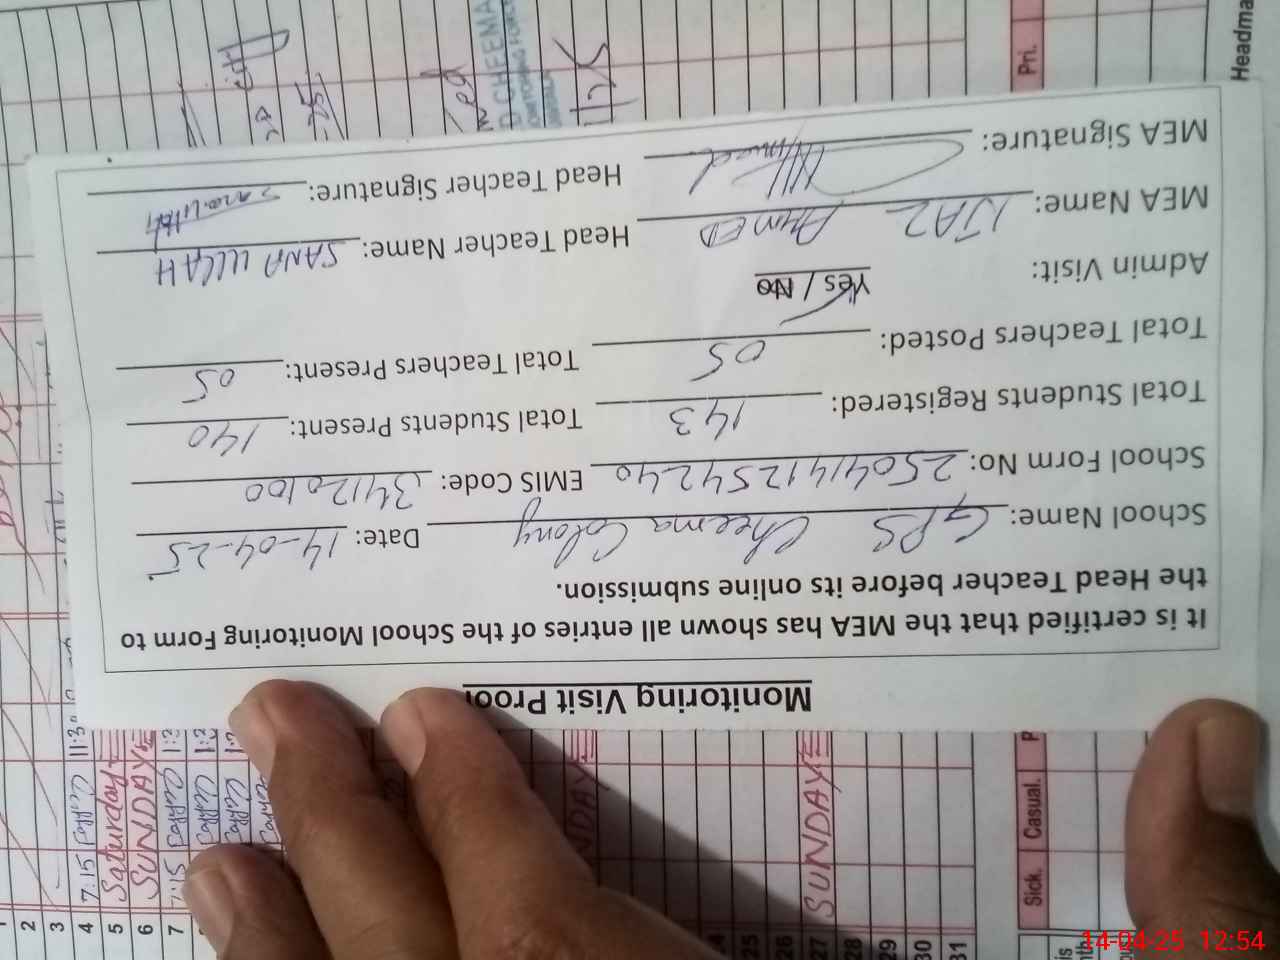 Monitoring Visit Proof
It is certified that the MEA has shown all entries of the School Monitoring Form to
the Head Teacher before its online submission.
School Name: GPS Cheema Colony Date: 14-04-25
School Form No: 2504141254240 EMIS Code: 34120100
Total Students Registered: 143 Total Students Present: 140
Total Teachers Posted: 05 Total Teachers Present: 05
Admin Visit: Yes / No
MEA Name: IJAZ AHMED Head Teacher Name: SANA ULLAH
MEA Signature: Ahmed Head Teacher Signature: Sanaullah
CHEEMA
Pri.
Headma
Sick. Casual. P
2
3
4 7:15 11:30
5 Saturday
6 SUNDAY
7 7:15
SUNDAY
24
25
26
27 SUNDAY
28
29
30
31
14-04-25 12:54